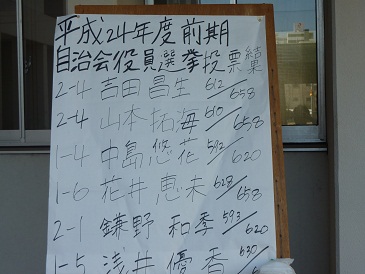 平成24年度前期
自治会役員選挙投票結果
2-4 吉田 昌生 612/658
2-4 山本 拓海 610/658
1-4 中島 悠花 592/620
1-6 花井 恵未 628/658
2-1 鎌野 和季 593/620
1-5 浅井 優香 630/